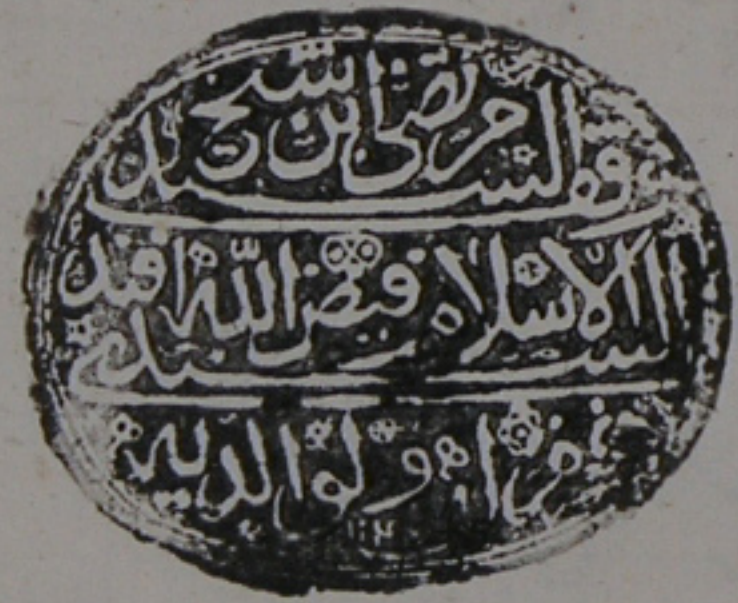 وقف السيد مرتضى ابن شيخ
الاسلام السيد فيض الله افندي
غفر له ولوالديه